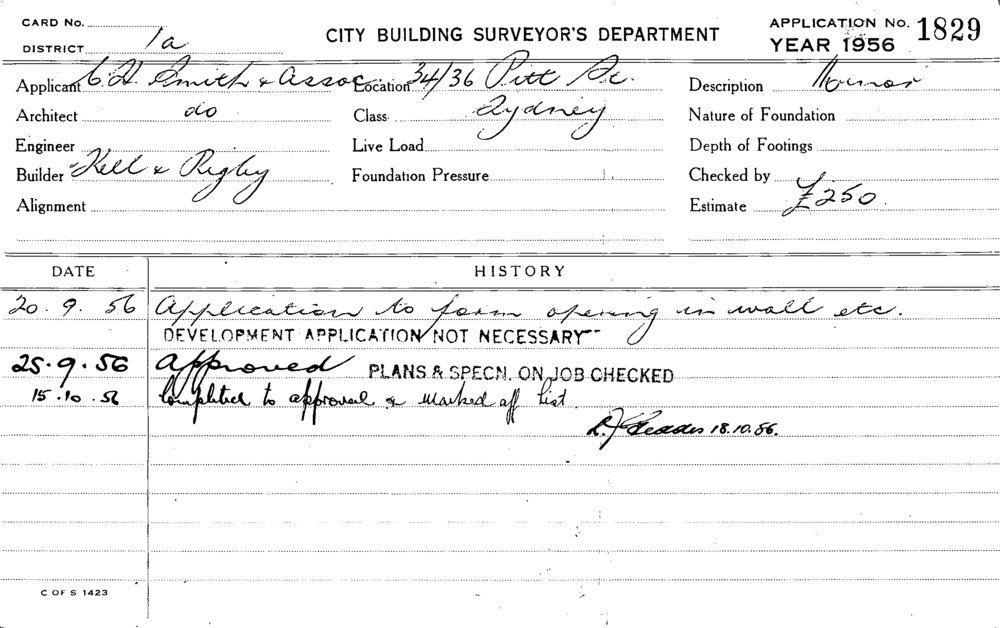 CARD No.
DISTRICT 1a
CITY BUILDING SURVEYOR'S DEPARTMENT
APPLICATION No. 1829
YEAR 1956
Applicant C. H. Smith & Assoc Location 34/36 Pitt St. Description Minor
Architect do Class Sydney Nature of Foundation
Engineer Live Load Depth of Footings
Builder Kell & Rigby Foundation Pressure Checked by
Alignment Estimate £250.
DATE HISTORY
20. 9. 56 Application to form opening in wall etc.
DEVELOPMENT APPLICATION NOT NECESSARY
25.9.56 Approved PLANS & SPECN. ON JOB CHECKED
15.10.56 Completed to approval & marked off list.
18.10.56.
C OF S 1423